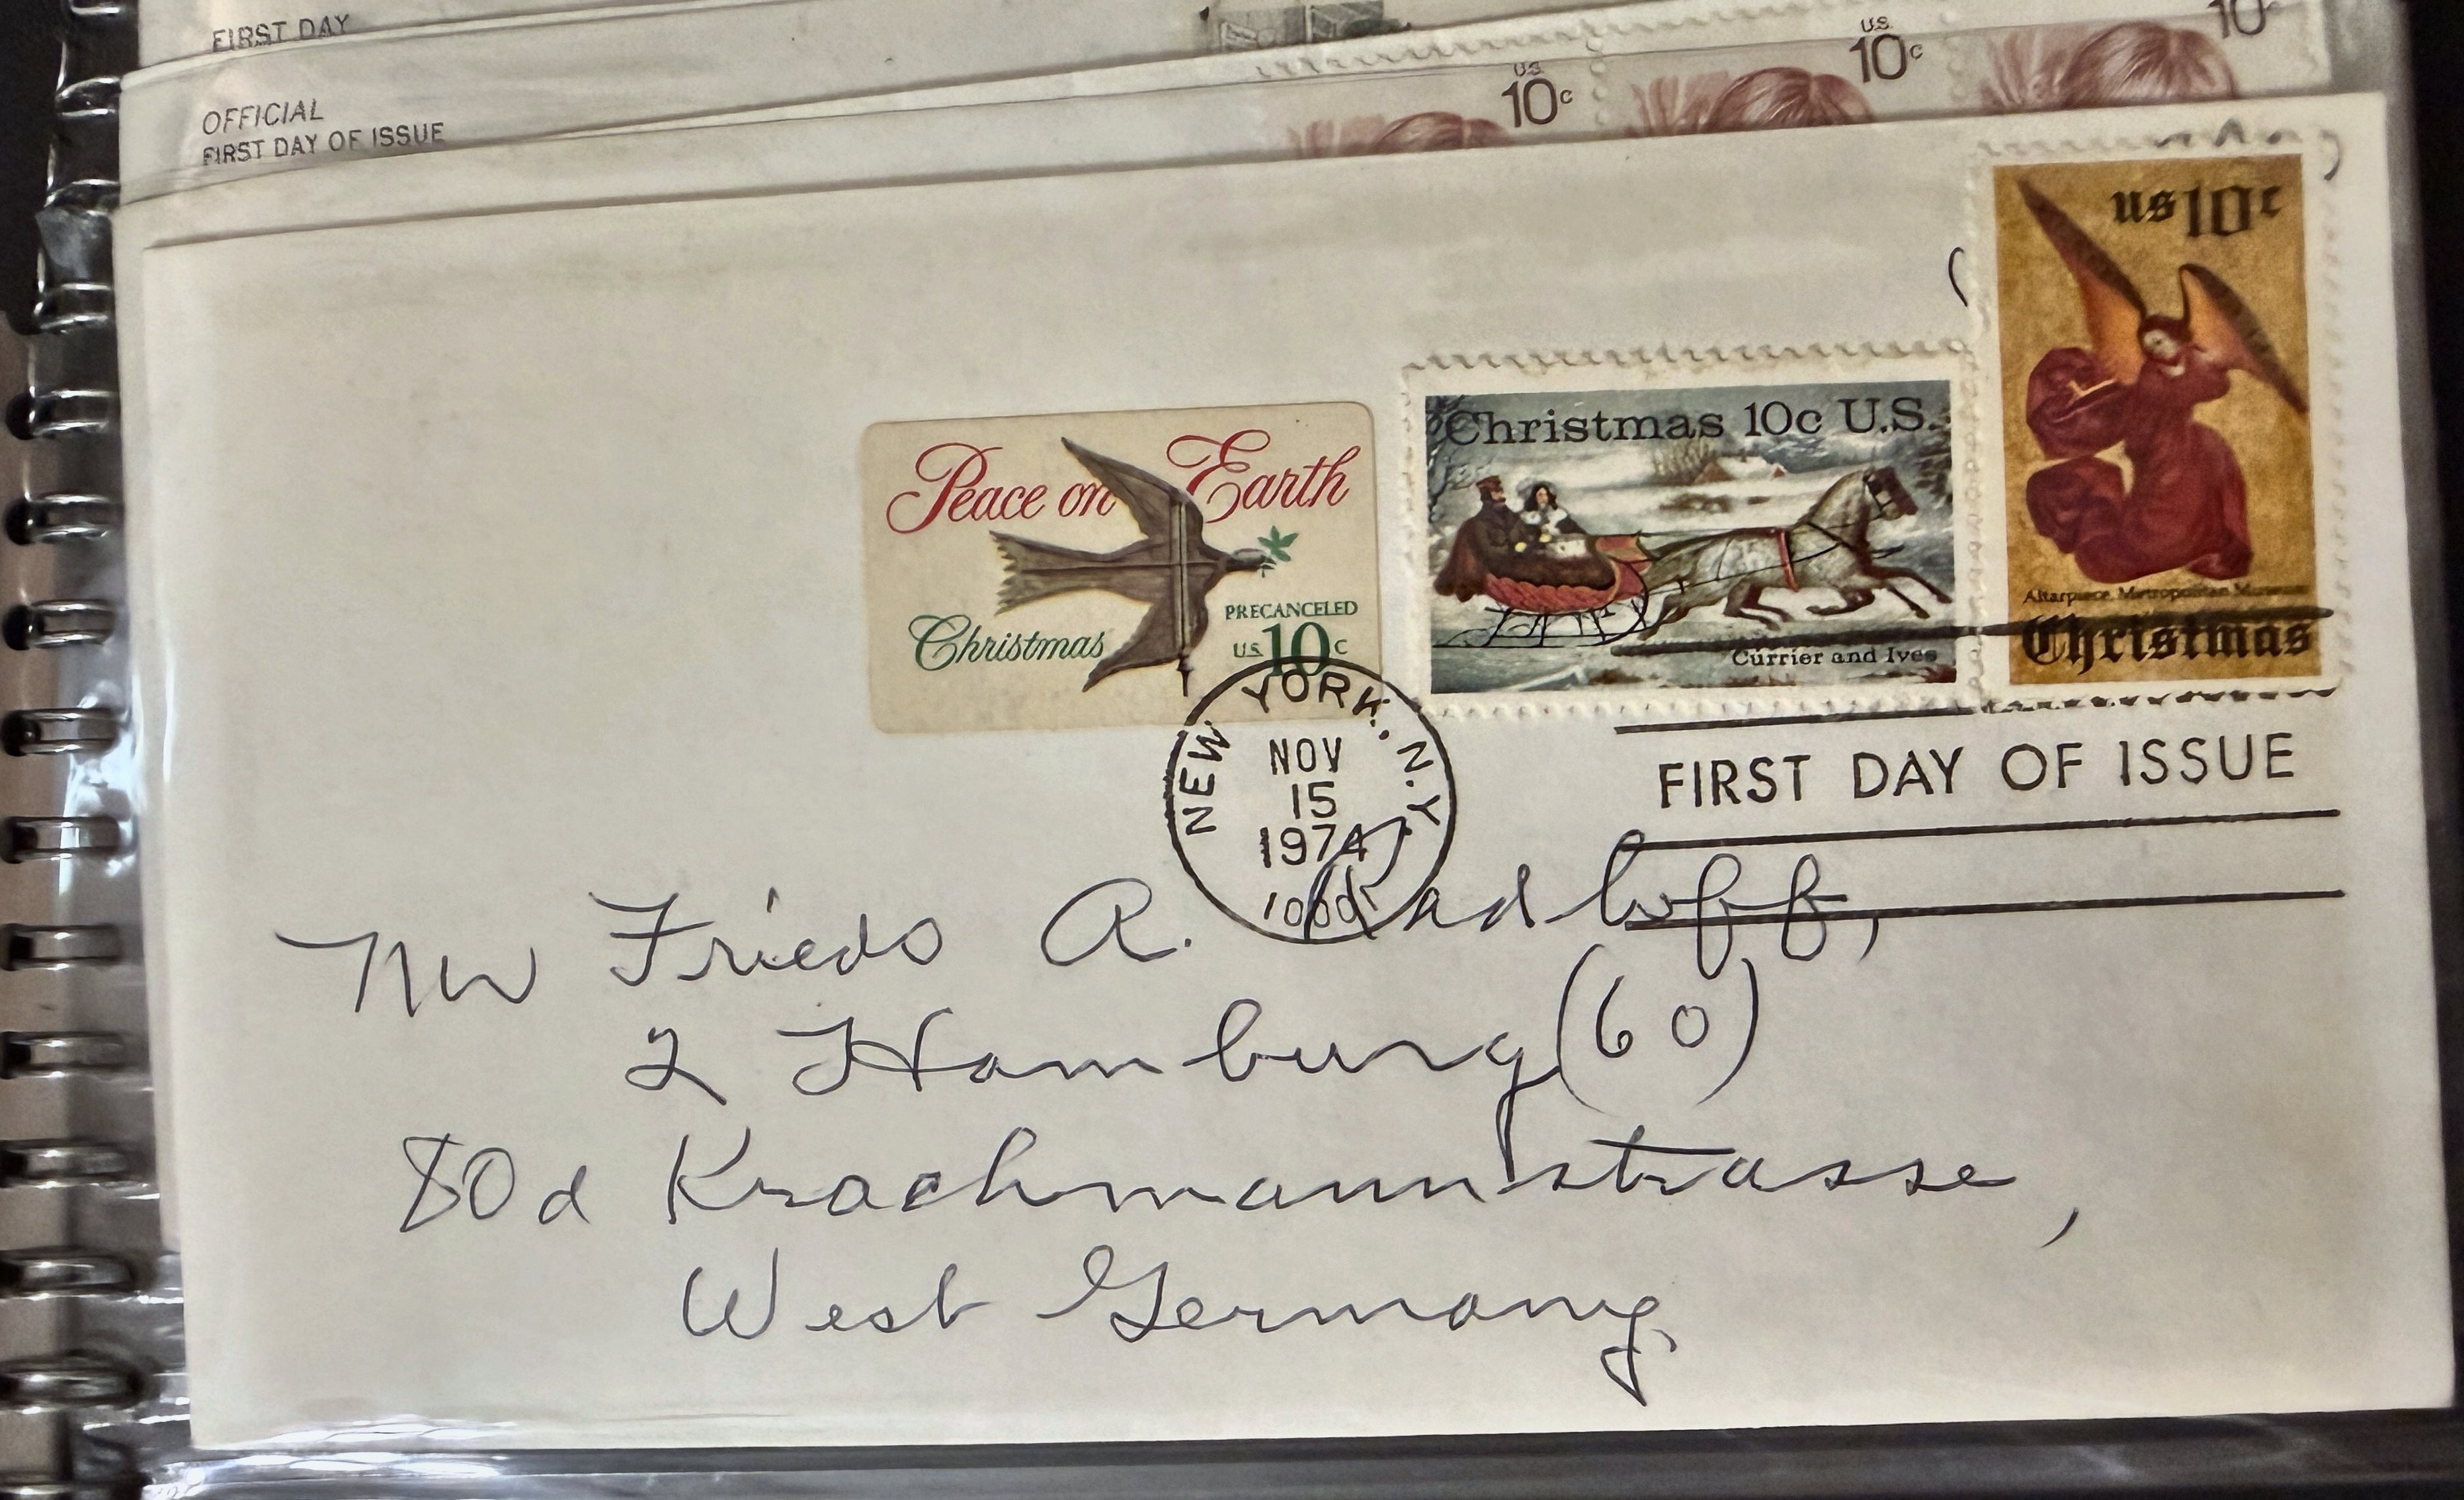 FIRST DAY
OFFICIAL
FIRST DAY OF ISSUE
U.S.
10c
U.S.
10c
10c
us 10c
Altarpiece Metropolitan Museum
Christmas
Christmas 10c U.S.
Currier and Ives
Peace on Earth
Christmas
PRECANCELED
U.S. 10c
NEW YORK, N.Y.
NOV
15
1974
FIRST DAY OF ISSUE
A. Radloff,
2 Hamburg (60)
80d Krachmannstrasse,
West Germany.